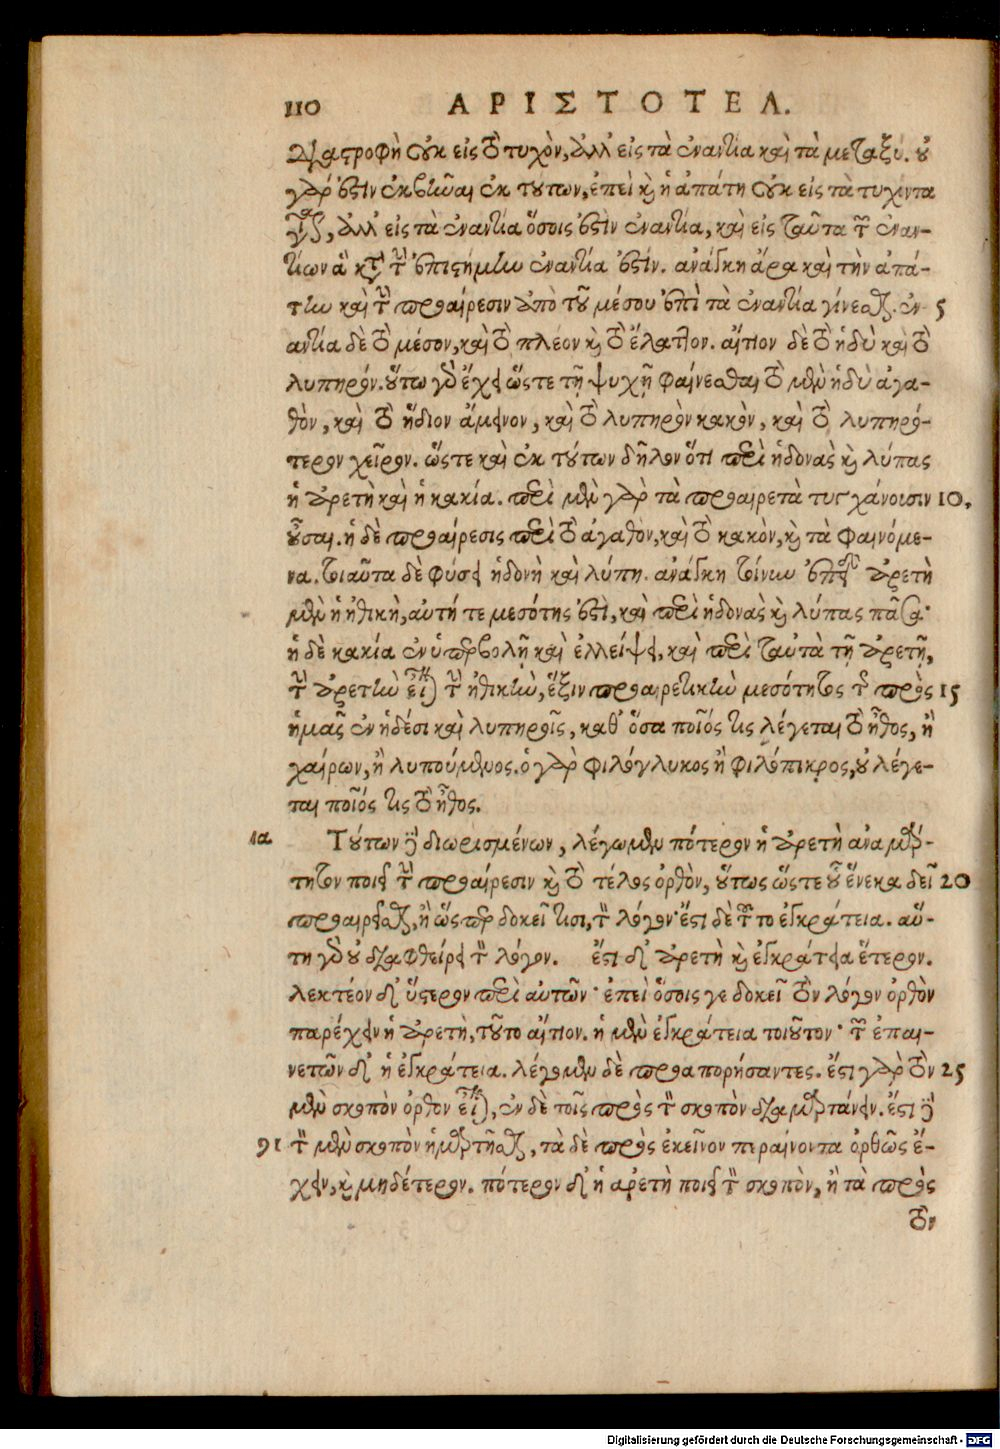 110 ΑΡΙΣΤΟΤΕΛ.
διαστροφὴ οὐκ εἰς τὸ τυχὸν, ἀλλ' εἰς τὰ ἐναντία καὶ τὰ μεταξύ. οὐ
γάρ ἐστιν ἐκβῆναι ἐκ τούτων, ἐπεὶ καὶ ἡ ἀπάτη οὐκ εἰς τὰ τυχόντα
γίνεται, ἀλλ' εἰς τὰ ἐναντία ὅσοις ἐστὶν ἐναντία, καὶ εἰς ταῦτα τῶν ἐναν-
τίων ἃ κατὰ τὴν ἐπιστήμην ἐναντία ἐστίν. ἀνάγκη ἄρα καὶ τὴν ἀπά-
την καὶ τὴν προαίρεσιν ἀπὸ τοῦ μέσου ἐπὶ τὰ ἐναντία γίνεσθαι. ἐν- 5
αντία δὲ τὸ μέσον, καὶ τὸ πλέον καὶ τὸ ἔλαττον. αἴτιον δὲ τὸ ἡδὺ καὶ τὸ
λυπηρόν. οὕτω γὰρ ἔχει ὥστε τῇ ψυχῇ φαίνεσθαι τὸ μὲν ἡδὺ ἀγα-
θὸν, καὶ τὸ ἥδιον ἄμεινον, καὶ τὸ λυπηρὸν κακόν, καὶ τὸ λυπηρό-
τερον χεῖρον. ὥστε καὶ ἐκ τούτων δῆλον ὅτι περὶ ἡδονὰς καὶ λύπας
ἡ ἀρετὴ καὶ ἡ κακία. περὶ μὲν γὰρ τὰ προαιρετὰ τυγχάνουσιν 10.
οὖσαι. ἡ δὲ προαίρεσις περὶ τὸ ἀγαθὸν, καὶ τὸ κακὸν, καὶ τὰ φαινόμε-
να. τοιαῦτα δὲ φύσει ἡδονὴ καὶ λύπη. ἀνάγκη τοίνυν ἐπεὶ ἀρετὴ
μὲν ἡ ἠθικὴ, αὐτή τε μεσότης ἐστὶ, καὶ περὶ ἡδονὰς καὶ λύπας πᾶσα·
ἡ δὲ κακία ἐν ὑπερβολῇ καὶ ἐλλείψει, καὶ περὶ ταὐτὰ τῇ ἀρετῇ,
τὴν ἀρετὴν εἶναι τὴν ἠθικὴν, ἕξιν προαιρετικὴν μεσότητος τῆς πρὸς 15
ἡμᾶς ἐν ἡδέσι καὶ λυπηροῖς, καθ' ὅσα ποῖός τις λέγεται τὸ ἦθος, ἢ
χαίρων, ἢ λυπούμενος. ὁ γὰρ φιλόγλυκος ἢ φιλόπικρος, οὐ λέγε-
ται ποῖός τις τὸ ἦθος.
ια Τούτων δὲ διωρισμένων, λέγωμεν πότερον ἡ ἀρετὴ ἀναμάρ-
τητον ποιεῖ τὴν προαίρεσιν καὶ τὸ τέλος ὀρθὸν, οὕτως ὥστε οὗ ἕνεκα δεῖ 20
προαιρεῖσθαι, ἢ ὥσπερ δοκεῖ τισι, τὸν λόγον· ἔστι δὲ τοῦτο ἐγκράτεια. αὕ-
τη γὰρ οὐ διαφθείρει τὸν λόγον. ἔστι δ' ἀρετὴ καὶ ἐγκράτεια ἕτερον.
λεκτέον δ' ὕστερον περὶ αὐτῶν· ἐπεὶ ὅσοις γε δοκεῖ τὸν λόγον ὀρθὸν
παρέχειν ἡ ἀρετὴ, τοῦτο αἴτιον. ἡ μὲν ἐγκράτεια τοιοῦτον· τῶν ἐπαι-
νετῶν δ' ἡ ἐγκράτεια. λέγομεν δὲ προαπορήσαντες. ἔστι γὰρ τὸν 25
μὲν σκοπὸν ὀρθὸν εἶναι, ἐν δὲ τοῖς πρὸς τὸν σκοπὸν διαμαρτάνειν. ἔστι δὲ
91 τὸν μὲν σκοπὸν ἡμαρτῆσθαι, τὰ δὲ πρὸς ἐκεῖνον περαίνοντα ὀρθῶς ἔ-
χειν, καὶ μηδέτερον. πότερον δ' ἡ ἀρετὴ ποιεῖ τὸν σκοπὸν, ἢ τὰ πρὸς
τὸν
Digitalisierung gefördert durch die Deutsche Forschungsgemeinschaft - DFG